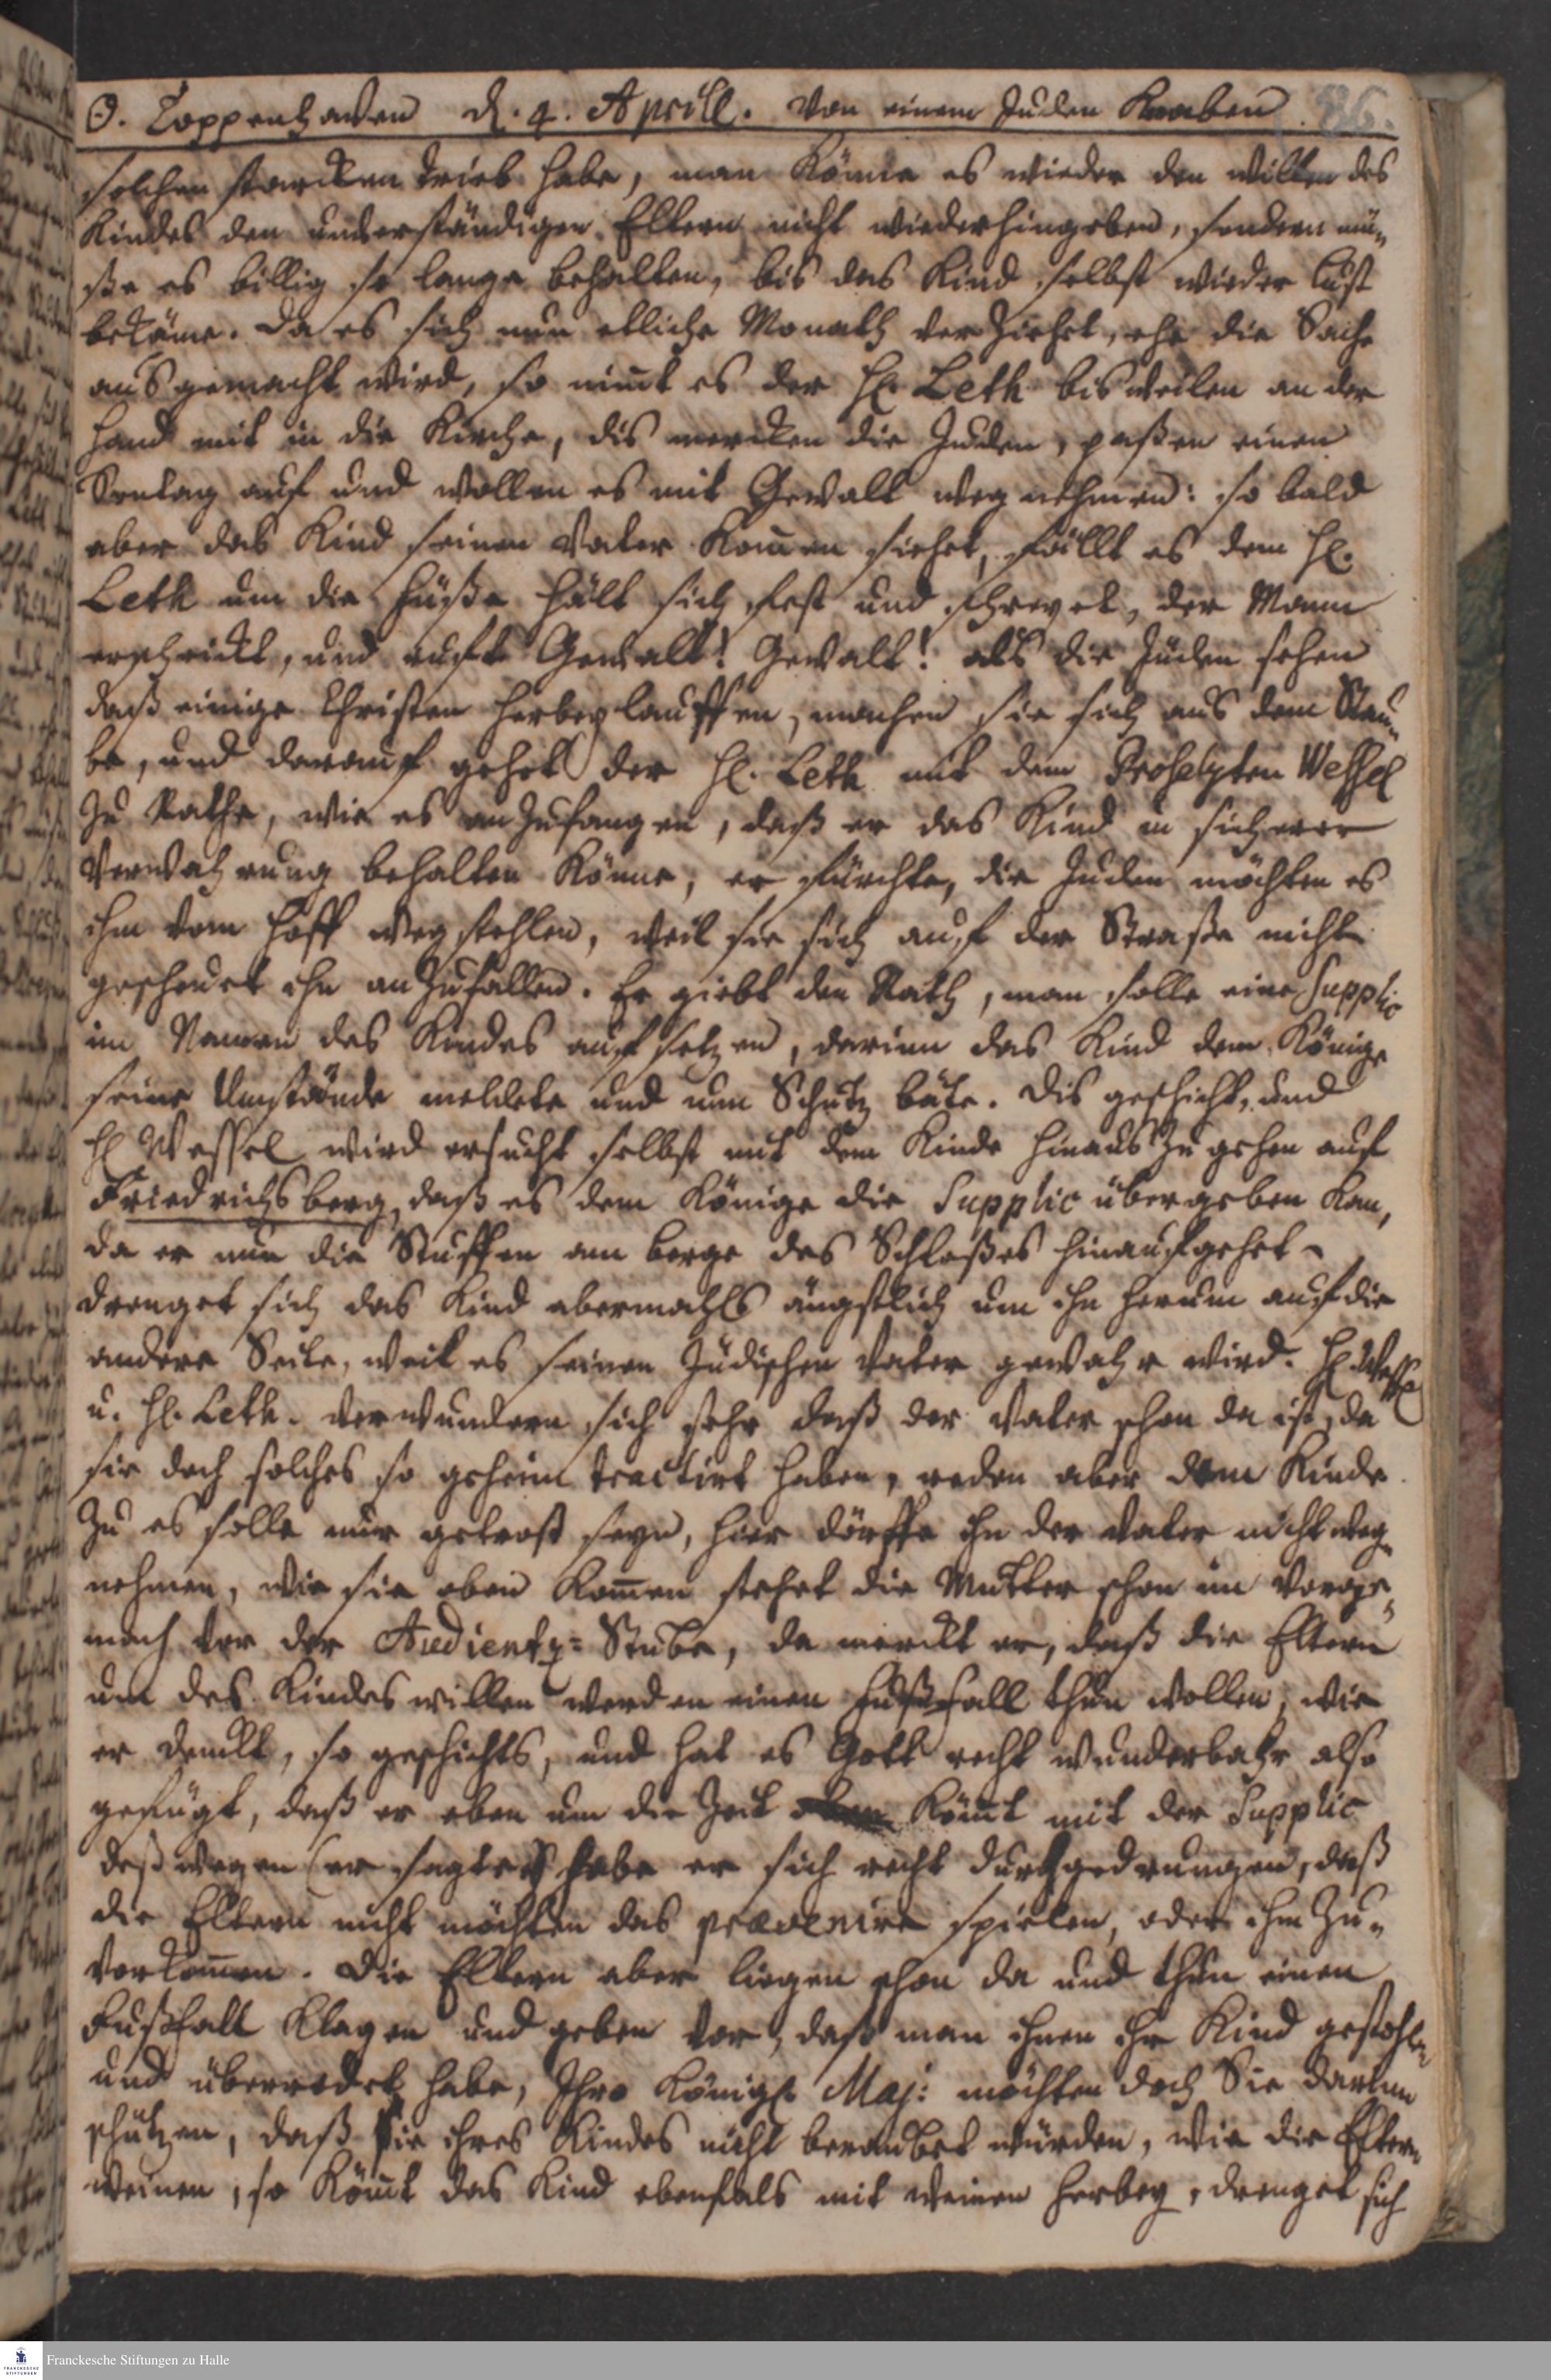 ☉. Coppenhaven d. 4. Aprill. Von einem Juden Knaben 86.
solchen starcken trieb habe, man könne es wieder den willen des
Kindes den unverständigen Eltern nicht wiederhingeben, sondern mü-
ße es billig so lange behalten, biß das Kind selbst wieder lust
bekäme. Da es sich nun etliche Monath verziehet, ehe die Sache
ausgemacht wird, so nim̅t es der H. Leth bisweilen an der
Hand mit in die Kirche, dis mercken die Juden, paßen einen
Sontag auf und wollen es mit Gewalt weg nehmen: so bald
aber das Kind seinen Vater kom̅en siehet, fällt es dem H.
Leth um die Füße hält sich fest und schreyet, der Mann
erschrickt, und rufte Gewalt! Gewalt! als die Juden sehen
daß einige Christen herbey lauffen, machen sie sich aus dem Stau-
be, und darauf gehet der H. Leth mit dem Proselyten Wessel
zu Rathe, wie es anzufangen, daß er das Kind in sicherer
Verwahrung behalten könne, er fürchte, die Juden möchten es
ihm vom Hoff weg stehlen, weil sie sich auf der Straße nicht
gescheuet ihn anzufallen. Er giebt den Rath, man solle eine Supplic
im Namen des Kindes aufsetzen, darinn das Kind dem Könige
seine Umstände meldete und um Schutz bäte. Dis geschicht, und
H Wessel wird ersucht selbst mit dem Kinde hinaus zu gehen auf
Friedrichsberg, daß es dem Könige die Supplic übergeben kan,
da er nun die Stuffen am berge des Schloßes hinaufgehet
drenget sich das Kind abermahls ängstlich um ihn herum auf die
andere Seite, weil es seinen Jüdischen Vater gewahr wird. H. Wessel
u. H. Leth. verwundern sich sehr daß der Vater schon da ist, da
sie doch solches so geheim tractirt haben, reden aber dem Kinde
zu es solle nur getrost seyn, hier dörffe ihn der Vater nicht weg-
nehmen, wie sie oben kom̅en stehet die Mutter schon im Vorge-
mach vor der Audientz-Stube, da merckt er, daß die Eltern
um des Kindes willen werden einen Fußfall thun wollen, wie
er denckt, so geschichts, und hat es Gott recht wunderbahr also
gefügt, daß er eben um die Zeit köm̅t mit der Supplic
deßwegen (er sagte) habe er sich recht durchgedrungen, daß
die Eltern nicht möchten das praevenire spielen, oder ihm zu-
vorkom̅en. Die Eltern aber liegen schon da und thun einen
Fußfall klagen und geben vor, daß man ihnen ihr Kind gestohlen
und überredet habe, Ihro Königl. Maj: möchten doch Sie darinn
schützen, daß sie ihres Kindes nicht beraubet würden, wie die Eltern
weinen, so köm̅t das Kind ebenfals mit weinen herbey, drenget sich
Franckesche Stiftungen zu Halle